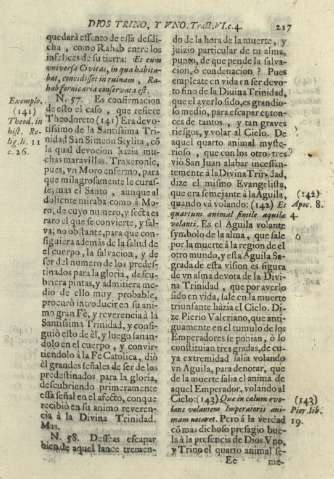 DIOS TRINO, Y VNO. Tract. VI. c. 4. 217
quedarà essento de essa desdi-
cha, como Rahab entre los
infelices de su tierra: Et cum
universa Civitas, in qua habita-
bat, concidisset in ruinam, Ra-
hab fornicaria conservata est.
N. 57. Es confirmacion
de esto el caso, que refiere
Theodoreto (141) Era devo-
tissimo de la Santissima Tri-
nidad San Simeon Stylita, cõ
la qual devocion hazia mu-
chas maravillas. Traxeronle,
pues, vn Moro enfermo, para
que milagrosamente le curas-
se, mas el Santo, aunque al
doliente miraba como à Mo-
ro, de cuyo numero, y secta es
raro el que se convierte, y sal-
va; no obstante, para que con-
siguiera además de la salud de
el cuerpo, la salvacion, y de
ser del numero de los predes-
tinados para la gloria, descu-
briera pintas, y admitiera me-
dio de ello muy probable,
procurò introducir en su ani-
mo gran Fè, y reverencia à la
Santissima Trinidad, y consi-
guiò esto de èl, y luego sanan-
dolo en el cuerpo, y convir-
tiendolo à la Fè Catolica, diò
èl grandes señales de ser de los
predestinados para la gloria,
descubriendo primeramente
essa señal en el afecto, con que
recibiò en su animo reveren-
cia à la Divina Trinidad.
Mas.
N. 58. Desseas escapar
bien de aquel lance tremen-
Exemplo.
(141)
Theod. in
hist. Re-
lig. li. 11
c. 26.
do de la hora de la muerte, y
juizio particular de tu alma,
punto, de que pende la salva-
cion, ò condenacion? Pues
empleate en vida en ser devo-
to fino de la Divina Trinidad,
que el averlo sido, es grandio-
so medio, para escapar enton-
ces de tantos, y tan graves
riesgos, y volar al Cielo. De
aquel quarto animal myste-
rioso, que con los otros tres
viò San Juan alabar incessan-
temente à la Divina Trinidad,
dize el mismo Evangelista,
que era semejante à la Aguila,
quando và volando: (142) Et
quartum animal simile aquilæ
volanti. Es el Aguila volante
symbolo de la alma, que sale
por la muerte à la region de el
otro mundo, y esta Aguila Sa-
grada de esta vision es figura
de vn alma devota de la Divi-
na Trinidad, que por averlo
sido en vida, sale en la muerte
triunfante hàzia el Cielo. Di-
ze Pierio Valeriano, que anti-
guamente en el tumulo de los
Emperadores se ponian, ò so
constituian tres gradas, de cu-
ya extremidad salia volando
vn Aguila, para denotar, que
de la muerte salia el alma de
aquel Emperador, volando al
Cielo: (143) Que in cælum evo-
lans volantem Imperatoris ani-
mam notaret. Pero à la verdad
cõ mas dichoso presagio bue-
la à la presencia de Dios Vno,
y Trino el quarto animal se-
Ee me-
(142)
Apoc. 8.
4
6
(143)
Pier. lib.
19.